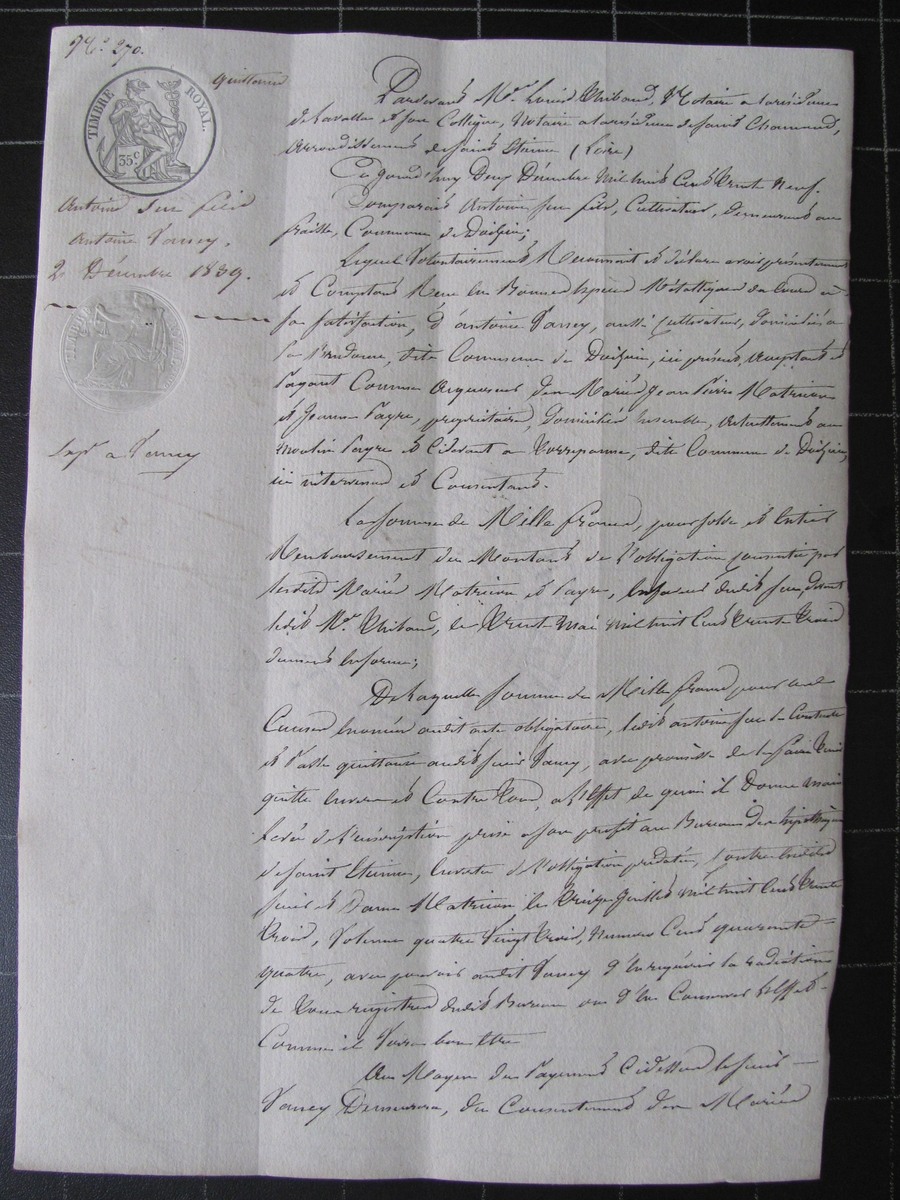 N.º 270.
quittance
TIMBRE ROYAL.
35 c
Antoine feu fils
Antoine Vancy.
2 Décembre 1839.
Exp. a Vancy
Pardevant Me. Thibaud, Notaire a la résidence
de Lavalla et son Collègue, Notaire a la résidence de Saint Chamond,
arrondissement de Saint Etienne (Loire)
Ce jourd'huy Deux Décembre mil huit Cent trente Neuf.
Comparait Antoine feu fils, Cultivateur, demeurant au
Commune de Doizieu;
Lequel Volontairement Reconnait et déclare avoir présentement
et Comptant Reçu en Bonnes Espèces Métalliques du Cours a
sa Satisfaction, d'antoine Vancy, aussi Cultivateur, domicilié a
dite Commune de Doizieu, ici présent, acceptant et
Payant Comme acquéreur des Mariés Jean Pierre Matricon
et Jeanne Payre, propriétaires, Domiciliés Ensemble, actuellement au
moulin Payre et Cidevant a dite Commune de Doizieu,
ici intervenant et Consentant.
La somme de Mille francs, pour solde et Entier
Remboursement du Montant de l'obligation Consentie par
lesdits Mariés Matricon et Payre, En faveur dudit feu, devant
ledit Me. Thibaud, le Trente Mai mil huit Cent Trente Trois
dument En forme;
De laquelle somme de Mille francs pour les
Causes Enoncées audit acte obligatoire, ledit antoine feu Se Contente
et Passe quittance audit Sieur Vancy, avec promesse de le faire tenir
quitte Envers et Contre tous, a l'Effet de quoi il Donne main
levée de l'inscription prise a son profit au Bureau des hipothèques
de Saint Etienne, En vertu de l'obligation prédatée, Contre lesdits
Sieur et Dame Matricon le Treize Juillet mil huit Cent trente
Trois, Volume quatre Vingt Trois, Numéro Cent quarante
quatre, avec pouvoir audit Vancy d'En requérir la radiation
de tous registres dudit Bureau ou d'En Conserver l'Effet
Comme il Verra bon Etre
Au Moyen du Payement Cidessus le Sieur
Vancy Demeurera, du Consentement des Mariés